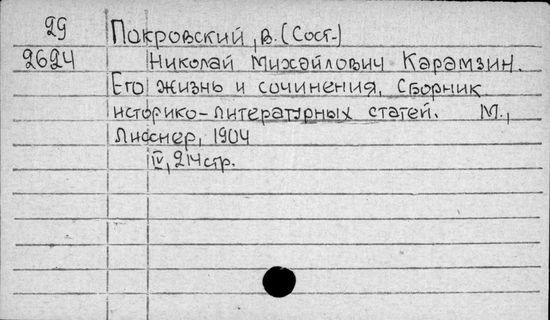 29 Покровский, В. (Сост.)
2624 Николай Михайлович Карамзин.
Его жизнь и сочинения, Сборник
историко-литературных статей. М.,
Лисснер, 1904
IV, 214 стр.